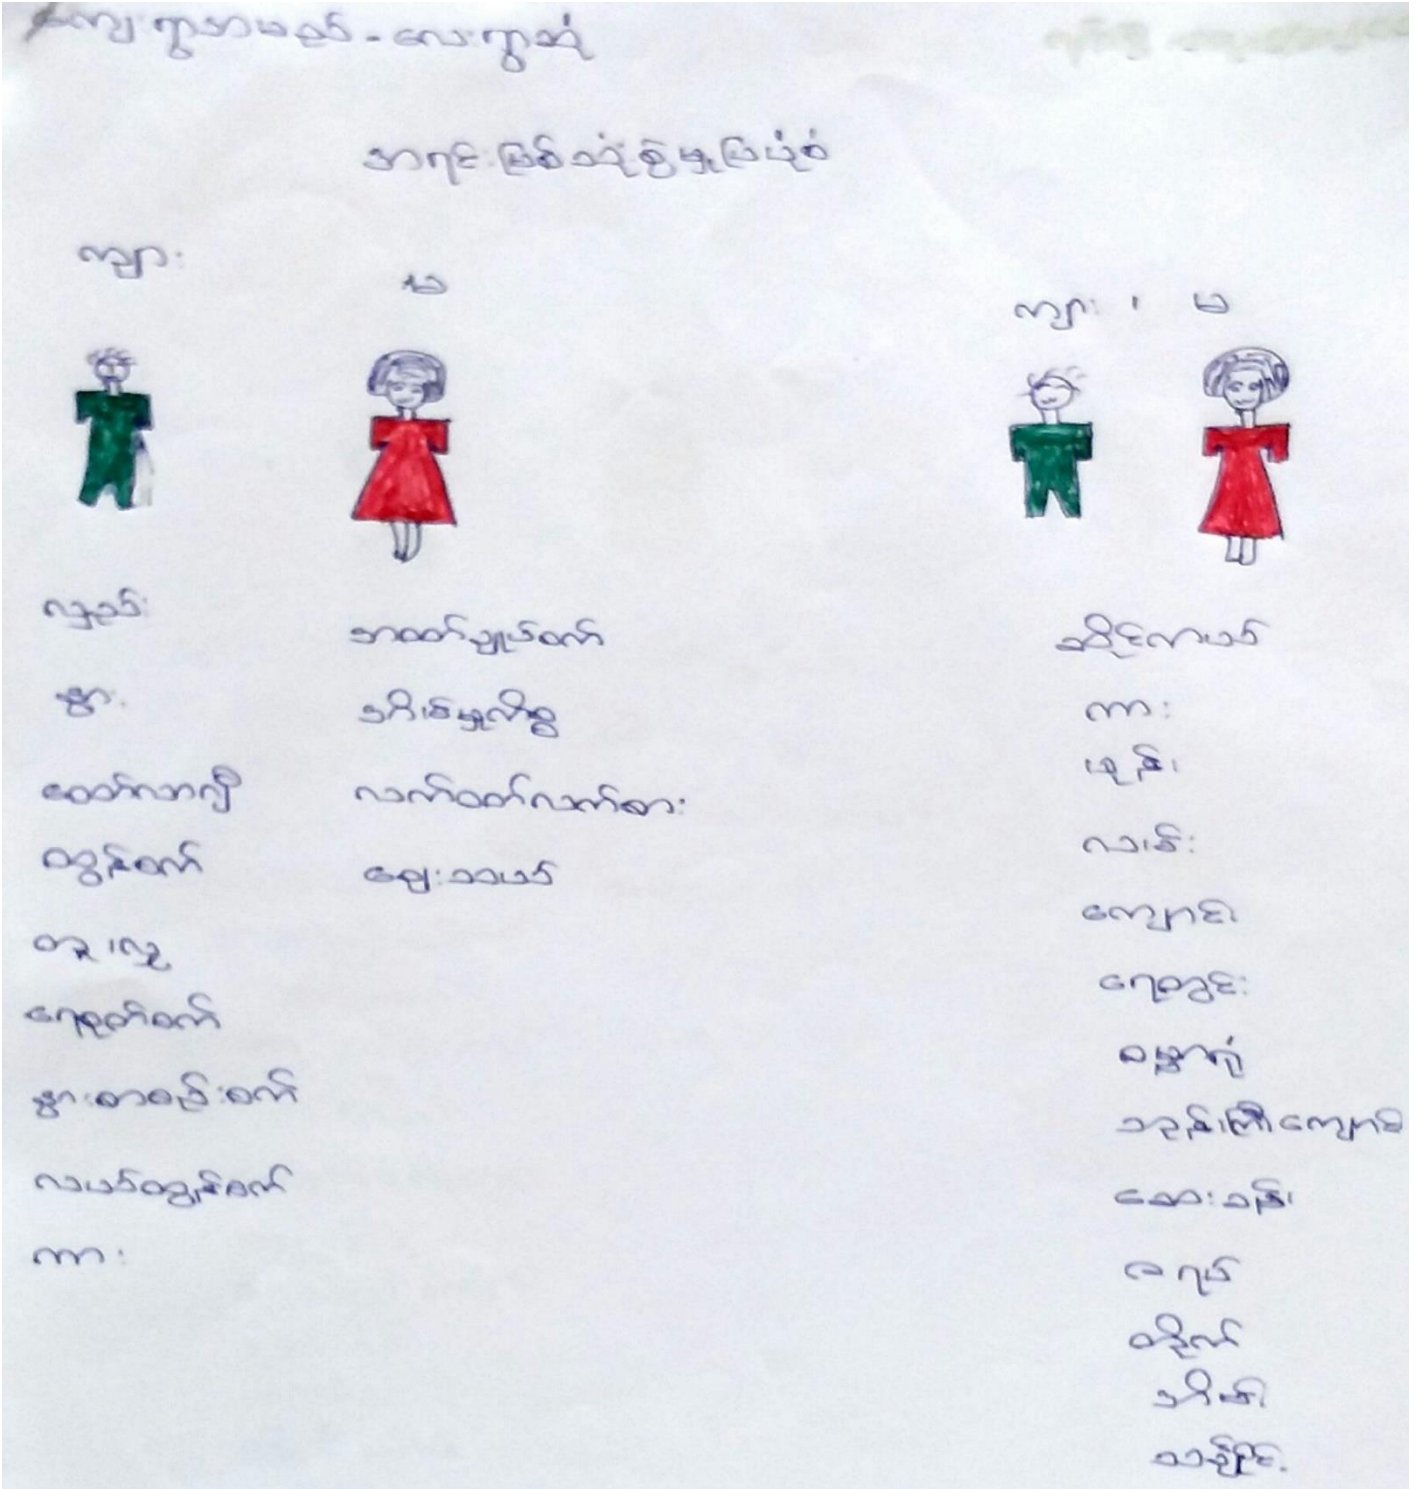 ကျေးရွာအမည် - လေးရွာဆုံ
အရင်းမြစ်သုံးစွဲမှုပြပုံစံ
ကျား
မ
ကျား ၊ မ
လှည်း
နွား
ထော်လာဂျီ
ထွန်စက်
တူ၊လှူ
ရေစုပ်စက်
နွားစာစဉ်းစက်
လယ်ထွန်စက်
ကား
အထည်ချုပ်စက်
အိမ်မှုကိစ္စ
လက်ဝတ်လက်စား
ဈေးသယ်
ဆိုင်ကယ်
ကား
ဖုန်း
လမ်း
ကျောင်း
ရေတွင်း
ဓမ္မာရုံ
ဘုန်းကြီးကျောင်း
ဆေးခန်း
ဇရပ်
တိုက်
အိမ်
သချိုင်း